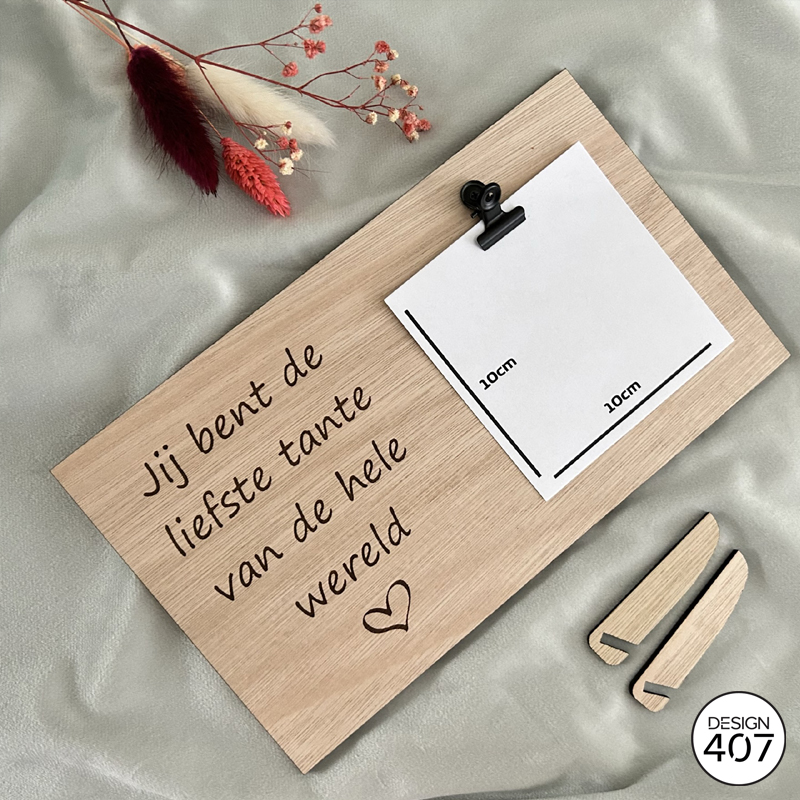 Jij bent de
liefste tante
van de hele
wereld
10cm
10cm
DESIGN
407